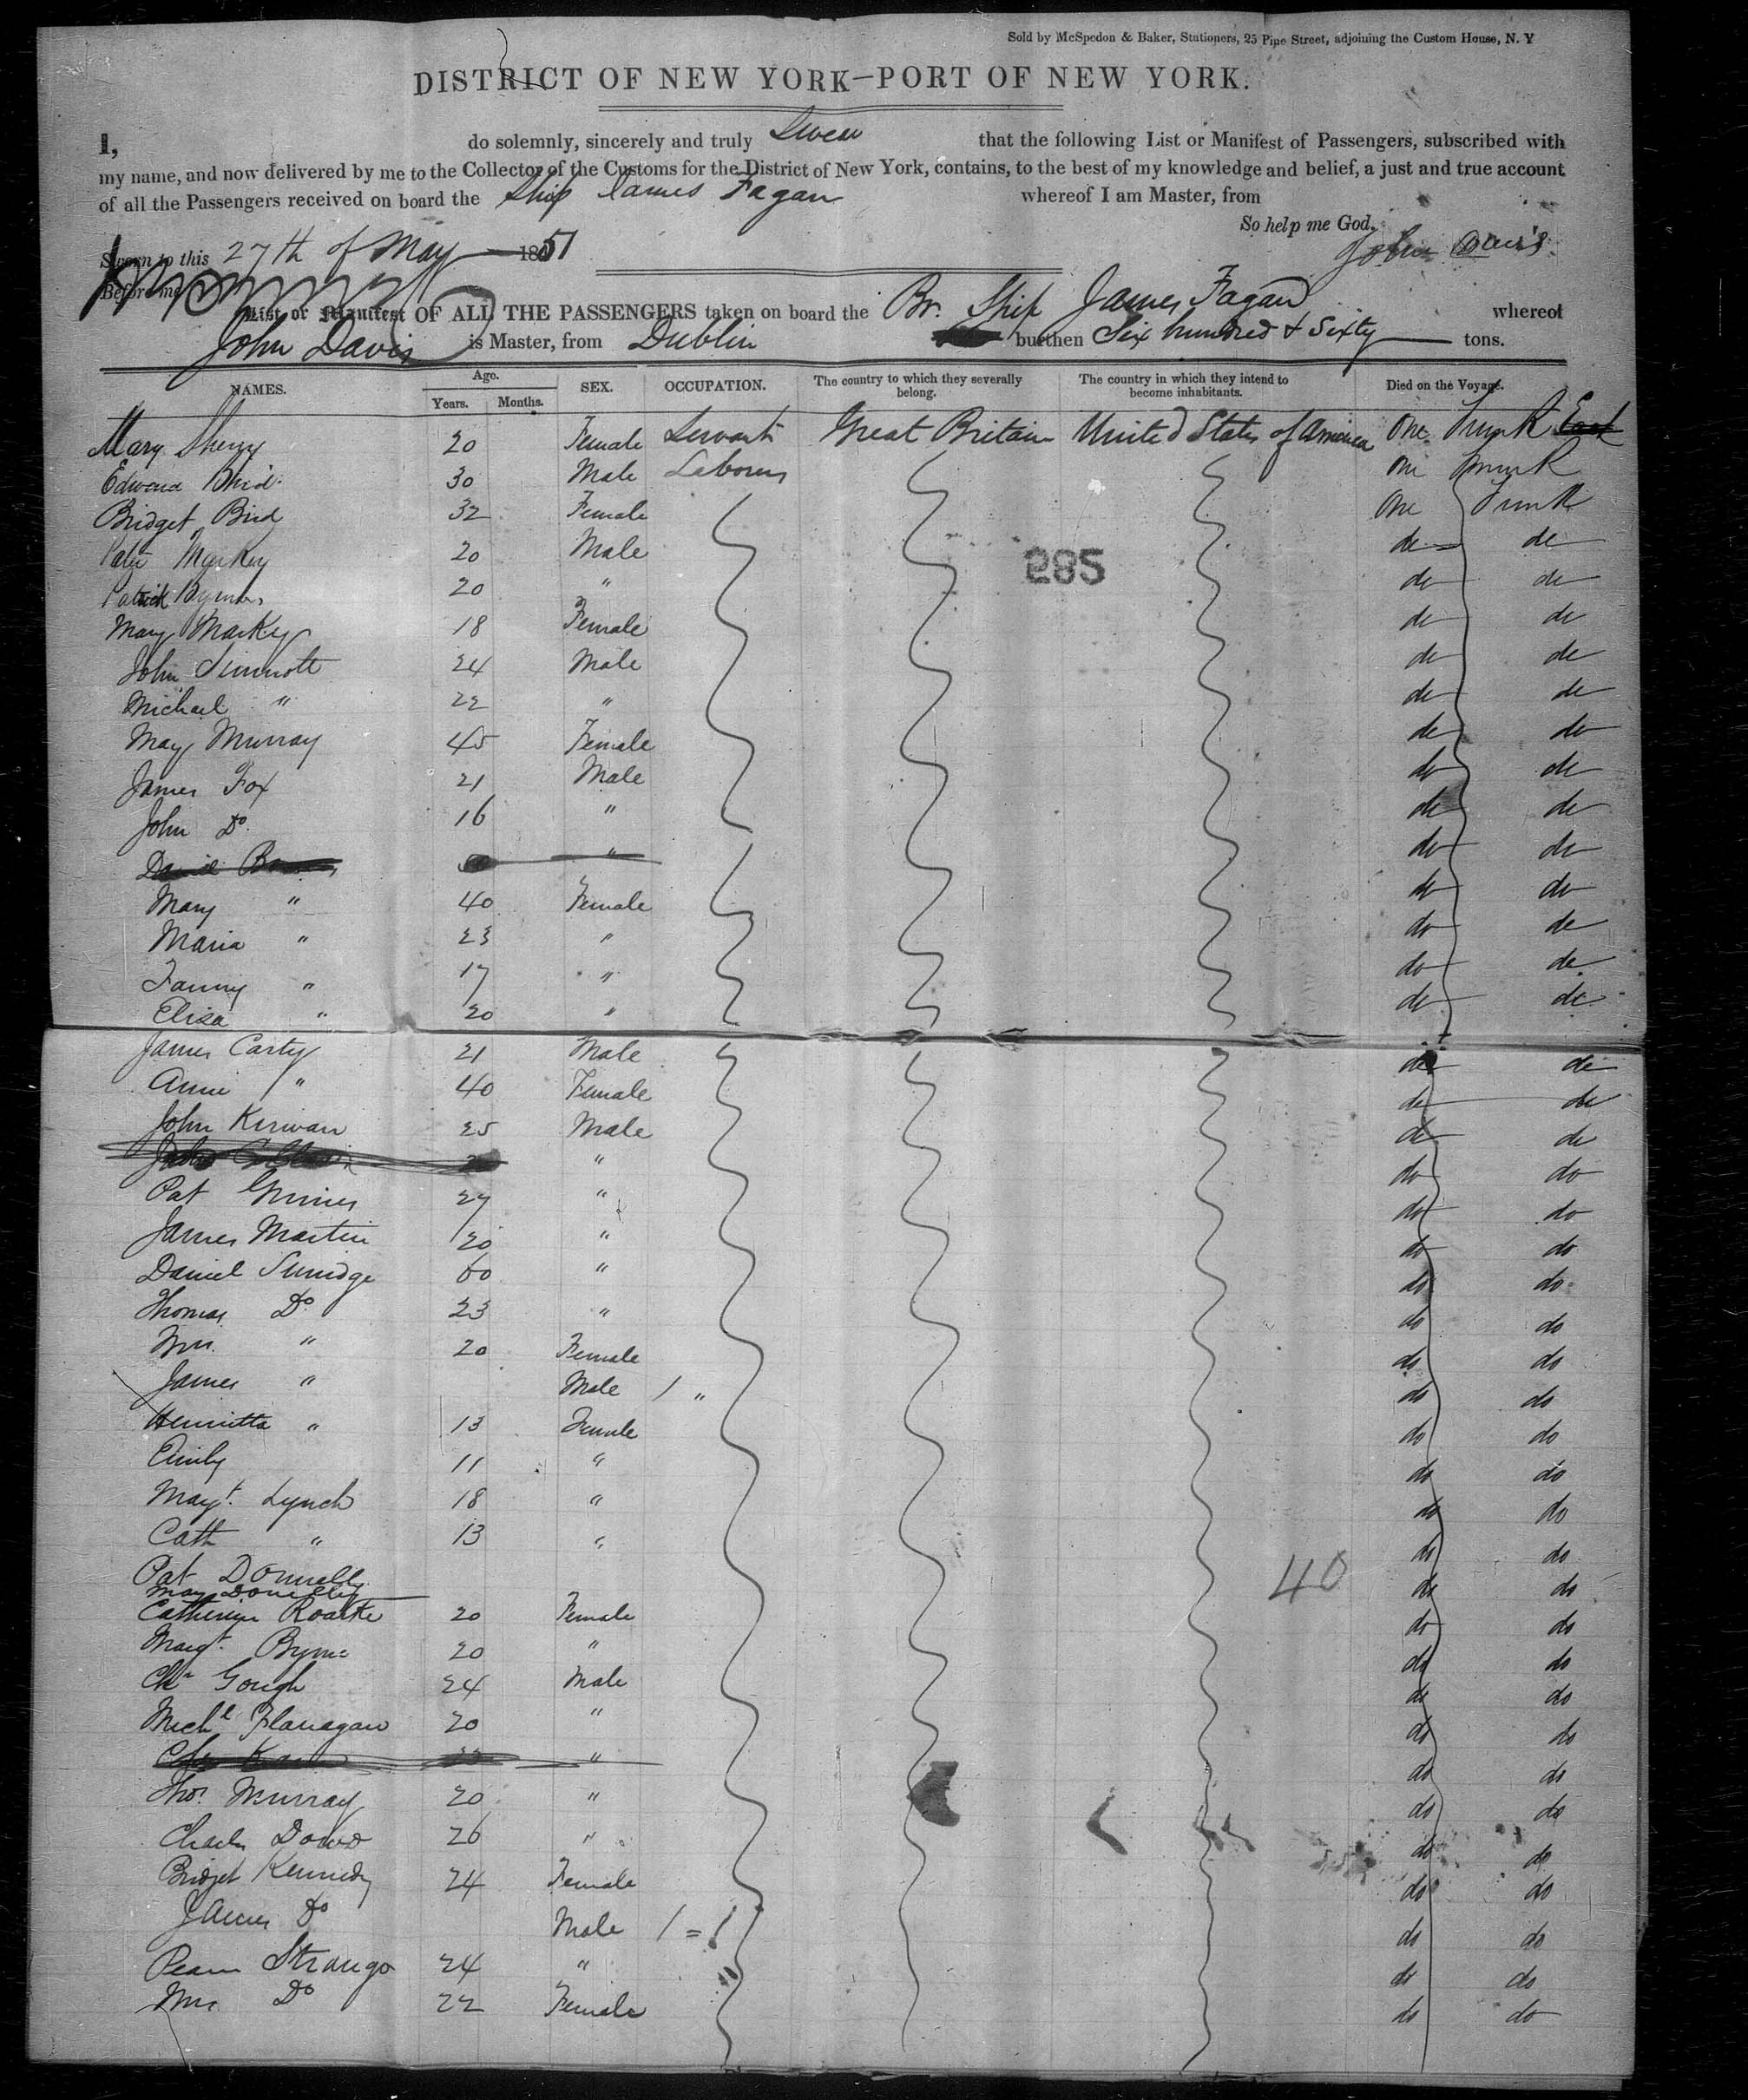 Sold by McSpedon & Baker, Stationers, 25 Pine Street, adjoining the Custom House, N. Y
DISTRICT OF NEW YORK—PORT OF NEW YORK.
I, do solemnly, sincerely and truly Swear that the following List or Manifest of Passengers, subscribed with
my name, and now delivered by me to the Collector of the Customs for the District of New York, contains, to the best of my knowledge and belief, a just and true account
of all the Passengers received on board the Ship James Fagan whereof I am Master, from
So help me God.
Sworn to this 27th of May 1851 John Davis
Before me
List or Manifest OF ALL THE PASSENGERS taken on board the Br. Ship James Fagan whereof
John Davis is Master, from Dublin burthen Six hundred & Sixty tons.
NAMES. Age. Years. Months. SEX. OCCUPATION. The country to which they severally belong. The country in which they intend to become inhabitants. Died on the Voyage.
Mary Sherry 20 Female Servant Great Britain United States of America One Trunk Each
Edward 30 Male Laborers One Trunk
Bridget Bird 32 Female One Trunk
Markey 20 Male do do
Patrick 20 " do do
Mary Markey 18 Female do do
John Sinnott 24 Male do do
Michael " 22 " do do
Mary Murray 45 Female do do
James Fox 21 Male do do
John Do. 16 " do do
" do do
Mary " 40 Female do do
Maria " 23 " do do
Fanny " 17 " do do
Eliza " 20 " do do
James Carty 21 Male do do
Anne " 40 Female do do
John Kirwan 25 Male do do
" do do
Pat Grimes 27 " do do
James Martin 20 " do do
Daniel 60 " do do
Thomas Do 23 " do do
Mrs. " 20 Female do do
James " Male 1 " do do
Henrietta " 13 Female do do
Emily 11 " do do
Magt. Lynch 18 " do do
Cath " 13 " do do
Pat Donnelly
May Donnelly
Catherine Roarke 20 Female do do
Margt. Byrne 20 " do do
Chr Gough 24 Male do do
Michl Flanagan 20 " do do
" do do
Thos. Murray 20 " do do
Charles Dowd 26 " do do
Bridget Kennedy 24 Female do do
James Do Male 1 = do do
Strange 24 " do do
Mrs Do 22 Female do do
285
40